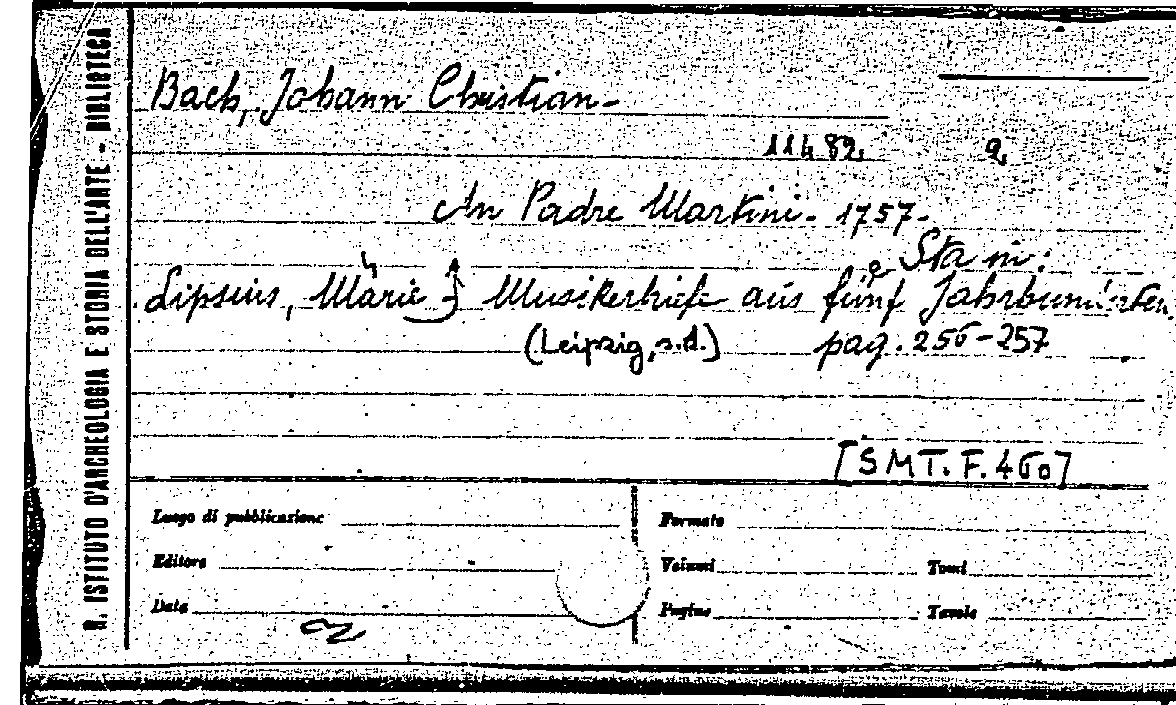 R. ISTITUTO D'ARCHEOLOGIA E STORIA DELL'ARTE - BIBLIOTECA
Bach, Johann Christian-
11482. q.
An Padre Martini. 1757.
Sta in:
Lipsius, Marie Musikerbriefe aus fünf Jahrhunderten,
(Leipzig, s.d.) pag. 256-257
[SMT. F. 460]
Luogo di pubblicazione Formato
Editore Volumi Tomi
Data Pagine Tavole